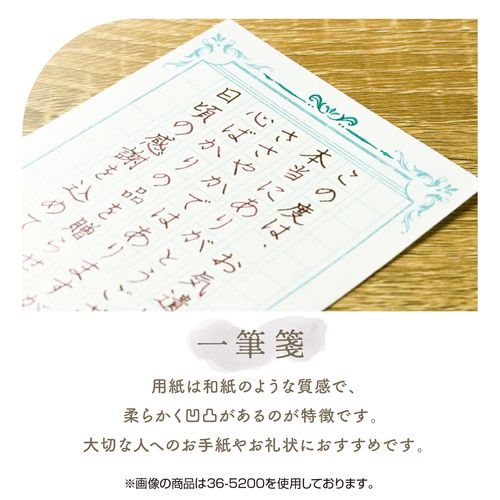 この度は、お気遣
本当にありがとうござ
ささやかではありますが
心ばかりの品を贈らせ
日頃の感謝を込めて
一筆箋
用紙は和紙のような質感で、
柔らかく凹凸があるのが特徴です。
大切な人へのお手紙やお礼状におすすめです。
※画像の商品は36-5200を使用しております。